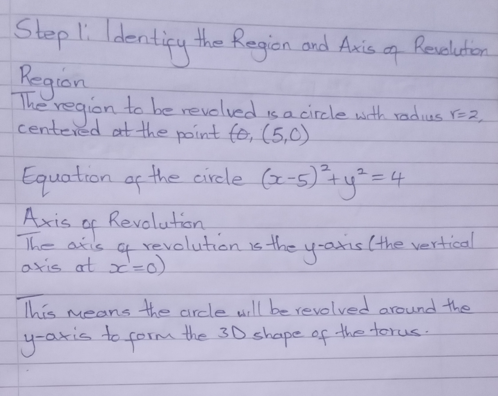 Step 1: Identify the Region and Axis of Revolution
Region
The region to be revolved is a circle with radius r=2,
centered at the point (5,0)
Equation of the circle (x-5)²+y²=4
Axis of Revolution
The axis of revolution is the y-axis (the vertical
axis at x=0)
This means the circle will be revolved around the
y-axis to form the 3D shape of the torus.